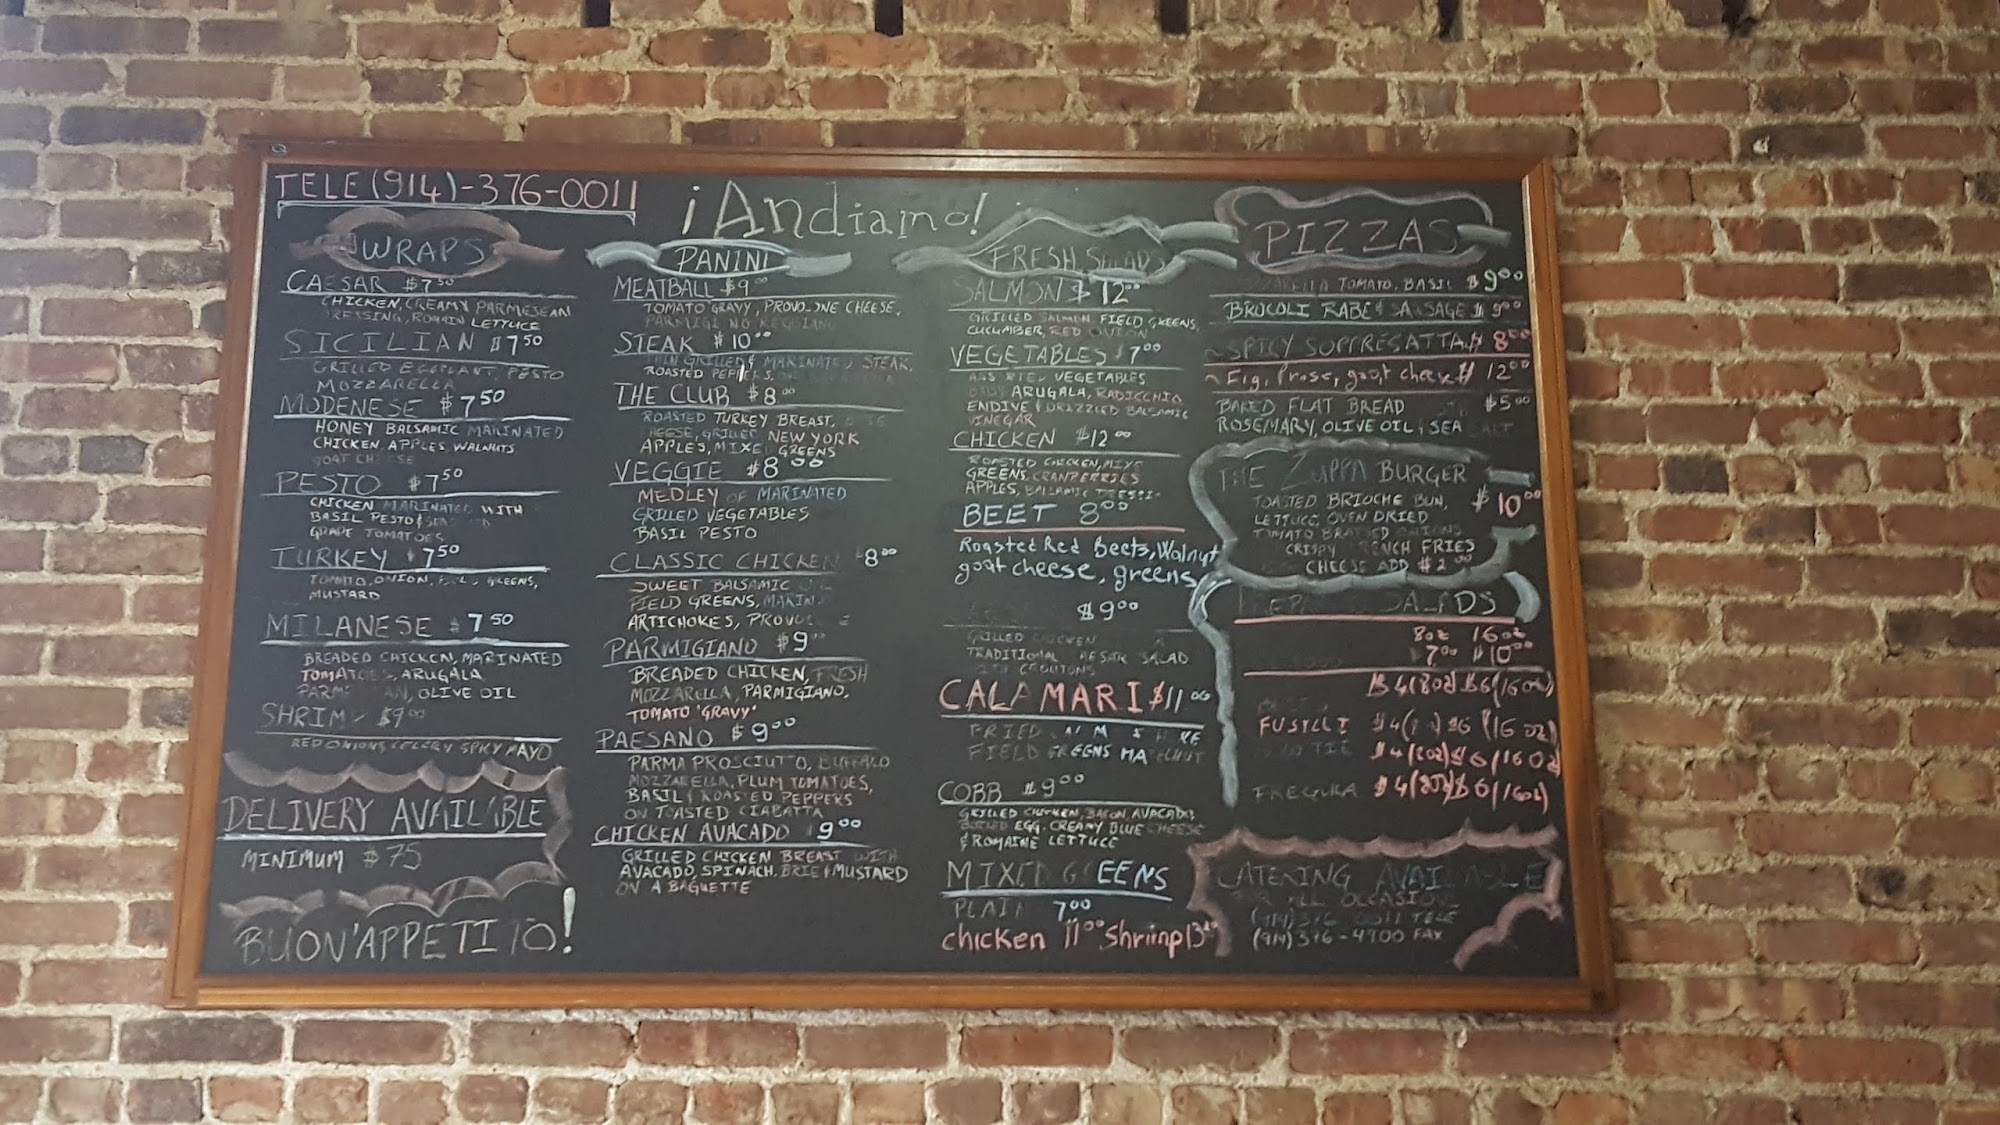 TELE (914)-376-0011
¡Andiamo!
WRAPS
CAESAR $7.50
CHICKEN, CREAMY PARMESEAN
LETTUCE
SICILIAN $7.50
GRILLED EGGPLANT, PESTO
MOZZARELLA
MODENESE $7.50
HONEY BALSAMIC MARINATED
CHICKEN, APPLES, WALNUTS
GOAT CHEESE
PESTO $7.50
CHICKEN MARINATED WITH
BASIL PESTO &
GRAPE TOMATOES
TURKEY 7.50
TOMATO, ONION, GREENS,
MUSTARD
MILANESE $7.50
BREADED CHICKEN, MARINATED
ARUGALA
OLIVE OIL
$9.00
RED ONIONS CELERY SPICY MAYO
DELIVERY AVAILABLE
MINIMUM $75
BUON'APPETITO!
PANINI
MEATBALL $9.00
TOMATO GRAVY, CHEESE,
STEAK $10.00
GRILLED & MARINATED STEAK,
ROASTED
THE CLUB $8.00
ROASTED TURKEY BREAST,
NEW YORK
APPLES, GREENS
VEGGIE $8.00
MEDLEY OF MARINATED
GRILLED VEGETABLES
BASIL PESTO
CLASSIC CHICKEN 8.00
SWEET BALSAMIC
FIELD GREENS,
ARTICHOKES,
PARMIGIANO $9.00
BREADED CHICKEN, FRESH
MOZZARELLA, PARMIGIANO,
TOMATO 'GRAVY'
PAESANO $9.00
PARMA PROSCIUTTO, BUFFALO
MOZZARELLA, PLUM TOMATOES,
BASIL & ROASTED PEPPERS
ON TOASTED CIABATTA
CHICKEN AVACADO 9.00
GRILLED CHICKEN BREAST WITH
AVACADO, SPINACH, BRIE & MUSTARD
ON A BAGUETTE
FRESH SALADS
SALMON $12.00
GRILLED SALMON FIELD GREENS,
CUCUMBER, RED ONION
VEGETABLES $7.00
VEGETABLES
ARUGALA, RADICCHIO
ENDIVE & DRIZZLED BALSAMIC
VINEGAR
CHICKEN $12.00
ROASTED CHICKEN,
GREENS, CRANBERRIES
APPLES, BALSAMIC
BEET 8.00
Roasted Red Beets, Walnut
goat cheese, greens
$9.00
GRILLED CHICKEN
TRADITIONAL SALAD
CROUTONS
CALAMARI $11.00
FRIED
FIELD GREENS
COBB $9.00
GRILLED CHICKEN, BACON AVACADO,
EGG, CREAMY BLUE CHEESE
& ROMAINE LETTUCE
MIXED GREENS
PLAIN 7.00
chicken 11.00 Shrimp 13
PIZZAS
TOMATO, BASIL $9.00
BROCOLI RABE & SAUSAGE $9.00
SPICY SOPPRESATTA $8.00
Fig, Prosc, goat cheese $12.00
BAKED FLAT BREAD $5.00
ROSEMARY, OLIVE OIL & SEA SALT
THE ZUPPA BURGER
TOASTED BRIOCHE BUN, $10.00
LETTUCE, OVEN DRIED
TOMATO
CRISPY FRENCH FRIES
CHEESE ADD $2.00
SALADS
8oz 16oz
7.00 $10.00
$4(8oz) $6(16oz)
FUSILLI $6 (16oz)
$4(8oz) $6(16oz)
FREGULA $4(8oz) $6(16oz)
CATERING AVAILABLE
ALL OCCASIONS
(914) 376 0011 TELE
(914) 376-4900 FAX